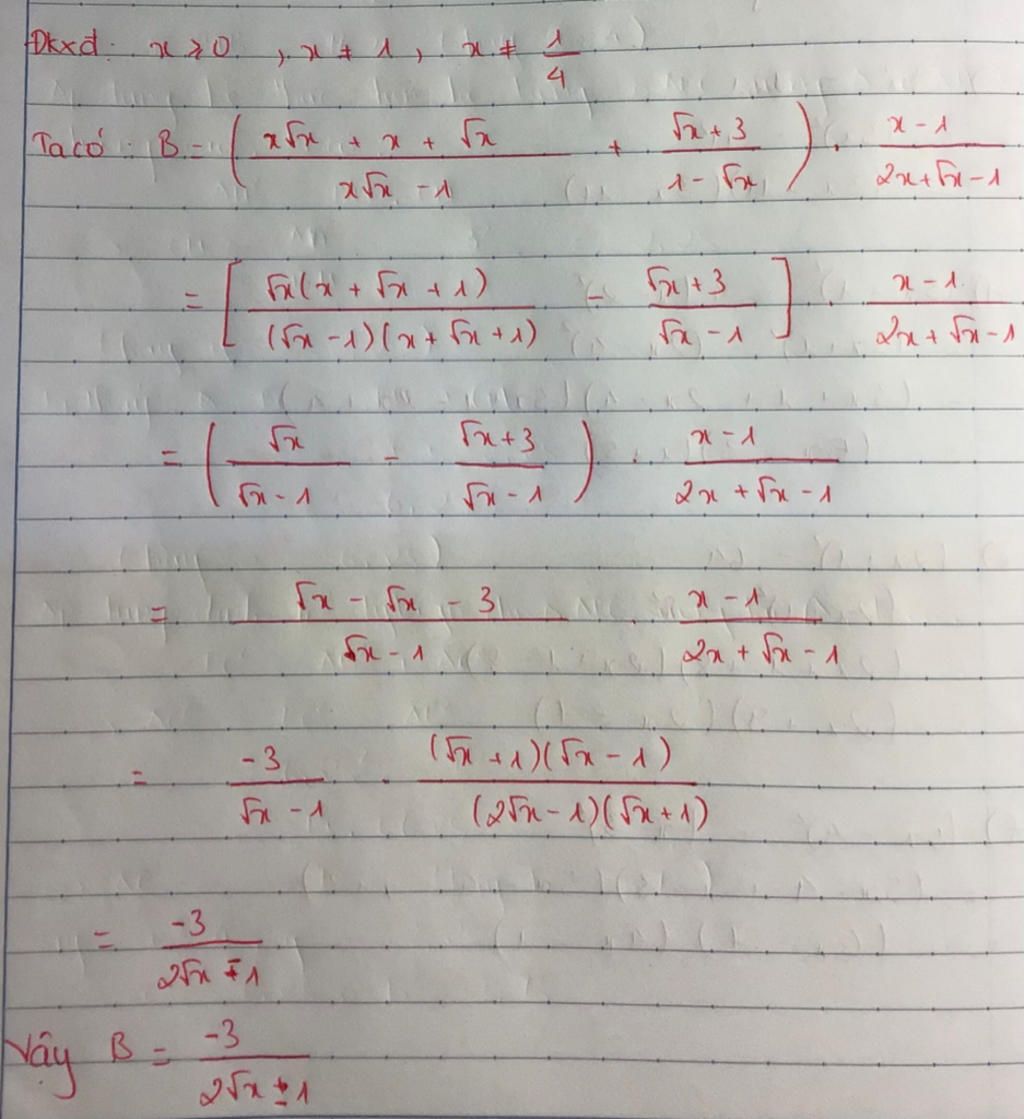 Đkxđ: x ≥ 0, x ≠ 1, x ≠ 1/4
Ta có: B = ( (x√x + x + √x)/(x√x - 1) + (√x + 3)/(1 - √x) ) . (x - 1)/(2x + √x - 1)
= [ (√x(x + √x + 1))/((√x - 1)(x + √x + 1)) - (√x + 3)/(√x - 1) ] . (x - 1)/(2x + √x - 1)
= ( √x/(√x - 1) - (√x + 3)/(√x - 1) ) . (x - 1)/(2x + √x - 1)
= (√x - √x - 3)/(√x - 1) . (x - 1)/(2x + √x - 1)
= -3/(√x - 1) . ((√x + 1)(√x - 1))/((2√x - 1)(√x + 1))
= -3/(2√x - 1)
Vậy B = -3/(2√x ± 1)